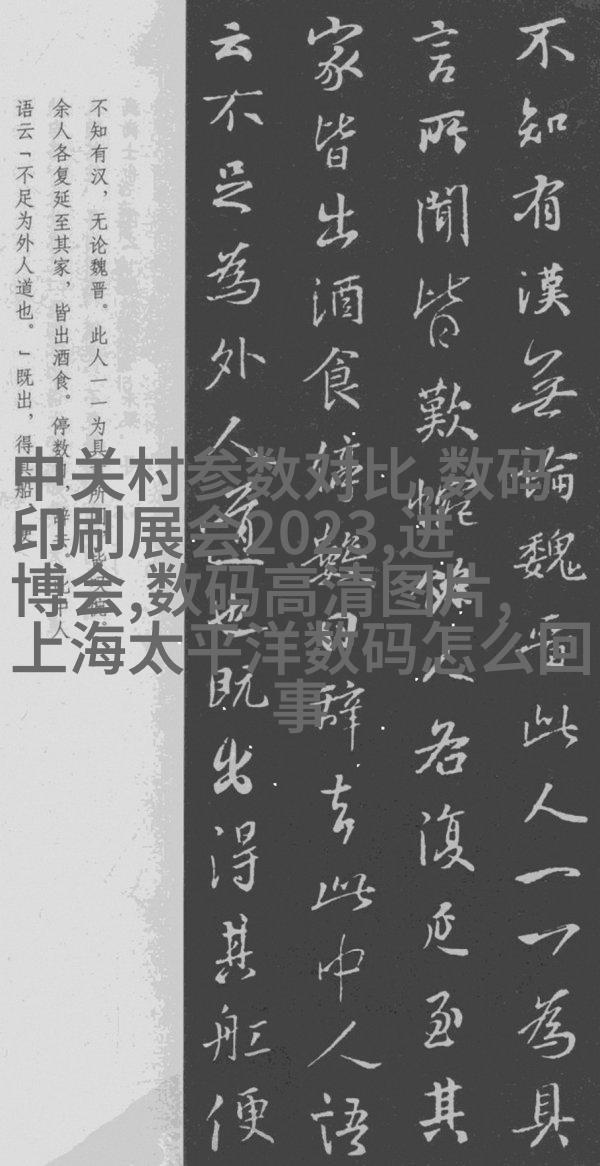 不知有漢無論魏晉此人一一為具
言所聞皆歎惋餘人各復延至其
家皆出酒食停數日辭去此中人語
云不足為外人道也既出得其船便
不知有汉，无论魏晋。此人一一为具
余人各复延至其家，皆出酒食。停数日，辞去。此中人
语云「不足为外人道也。」既出，得其船
中关村参数对比,数码
印刷展会2023,进
博会,数码高清图片,
上海太平洋数码怎么回
事